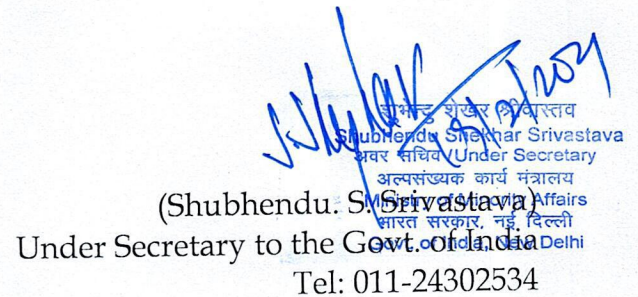 शुभेन्दु शेखर श्रीवास्तव
Shubhendu Shekhar Srivastava
अवर सचिव/Under Secretary
अल्पसंख्यक कार्य मंत्रालय
Ministry of Minority Affairs
भारत सरकार, नई दिल्ली
Govt. of India, New Delhi
(Shubhendu. S. Srivastava)
Under Secretary to the Govt. of India
Tel: 011-24302534